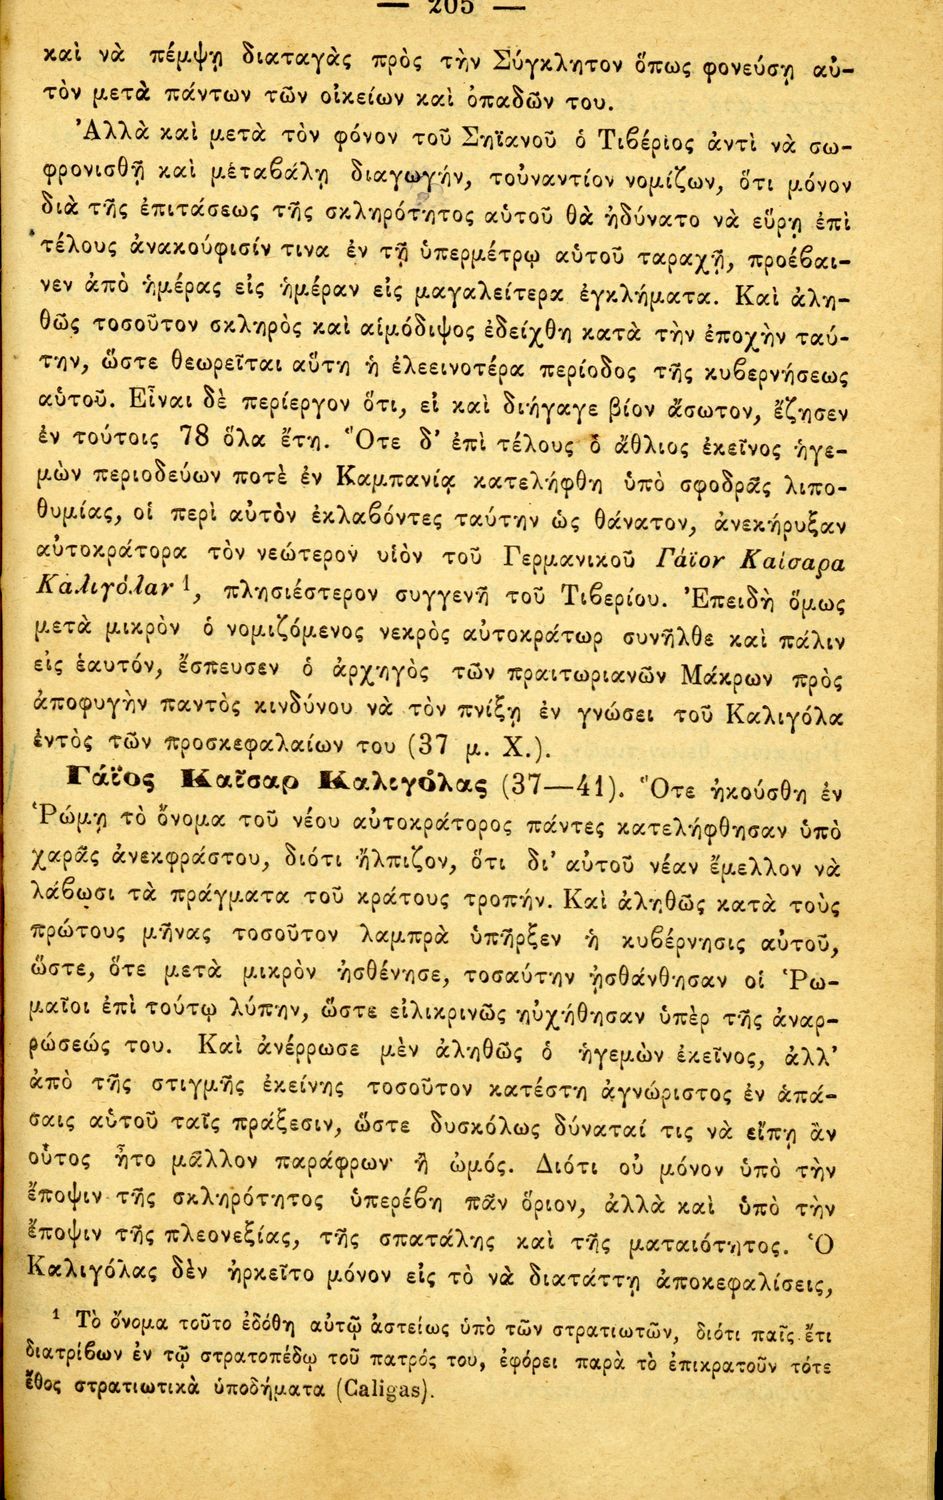 — 205 —
καὶ νὰ πέμψῃ διαταγὰς πρὸς τὴν Σύγκλητον ὅπως φονεύσῃ αὐ-
τὸν μετὰ πάντων τῶν οἰκείων καὶ ὀπαδῶν του.
Ἀλλὰ καὶ μετὰ τὸν φόνον τοῦ Σηϊανοῦ ὁ Τιβέριος ἀντὶ νὰ σω-
φρονισθῇ καὶ μεταβάλῃ διαγωγήν, τοὐναντίον νομίζων, ὅτι μόνον
διὰ τῆς ἐπιτάσεως τῆς σκληρότητος αὑτοῦ θὰ ἠδύνατο νὰ εὕρῃ ἐπὶ
τέλους ἀνακούφισίν τινα ἐν τῇ ὑπερμέτρῳ αὑτοῦ ταραχῇ, προέβαι-
νεν ἀπὸ ἡμέρας εἰς ἡμέραν εἰς μαγαλείτερα ἐγκλήματα. Καὶ ἀλη-
θῶς τοσοῦτον σκληρὸς καὶ αἱμόδιψος ἐδείχθη κατὰ τὴν ἐποχὴν ταύ-
την, ὥστε θεωρεῖται αὕτη ἡ ἐλεεινοτέρα περίοδος τῆς κυβερνήσεως
αὑτοῦ. Εἶναι δὲ περίεργον ὅτι, εἰ καὶ διήγαγε βίον ἄσωτον, ἔζησεν
ἐν τούτοις 78 ὅλα ἔτη. Ὅτε δ' ἐπὶ τέλους ὁ ἄθλιος ἐκεῖνος ἡγε-
μὼν περιοδεύων ποτὲ ἐν Καμπανίᾳ κατελήφθη ὑπὸ σφοδρᾶς λιπο-
θυμίας, οἱ περὶ αὐτὸν ἐκλαβόντες ταύτην ὡς θάνατον, ἀνεκήρυξαν
αὐτοκράτορα τὸν νεώτερον υἱὸν τοῦ Γερμανικοῦ Γάϊον Καίσαρα
Καλιγόλαν ¹, πλησιέστερον συγγενῆ τοῦ Τιβερίου. Ἐπειδὴ ὅμως
μετὰ μικρὸν ὁ νομιζόμενος νεκρὸς αὐτοκράτωρ συνῆλθε καὶ πάλιν
εἰς ἑαυτόν, ἔσπευσεν ὁ ἀρχηγὸς τῶν πραιτωριανῶν Μάκρων πρὸς
ἀποφυγὴν παντὸς κινδύνου νὰ τὸν πνίξῃ ἐν γνώσει τοῦ Καλιγόλα
ἐντὸς τῶν προσκεφαλαίων του (37 μ. Χ.).
Γάϊος Καῖσαρ Καλιγόλας (37—41). Ὅτε ἠκούσθη ἐν
Ῥώμῃ τὸ ὄνομα τοῦ νέου αὐτοκράτορος πάντες κατελήφθησαν ὑπὸ
χαρᾶς ἀνεκφράστου, διότι ἤλπιζον, ὅτι δι' αὐτοῦ νέαν ἔμελλον νὰ
λάβωσι τὰ πράγματα τοῦ κράτους τροπήν. Καὶ ἀληθῶς κατὰ τοὺς
πρώτους μῆνας τοσοῦτον λαμπρὰ ὑπῆρξεν ἡ κυβέρνησις αὐτοῦ,
ὥστε, ὅτε μετὰ μικρὸν ἠσθένησε, τοσαύτην ᾐσθάνθησαν οἱ Ῥω-
μαῖοι ἐπὶ τούτῳ λύπην, ὥστε εἰλικρινῶς ηὐχήθησαν ὑπὲρ τῆς ἀναρ-
ρώσεώς του. Καὶ ἀνέρρωσε μὲν ἀληθῶς ὁ ἡγεμὼν ἐκεῖνος, ἀλλ'
ἀπὸ τῆς στιγμῆς ἐκείνης τοσοῦτον κατέστη ἀγνώριστος ἐν ἁπά-
σαις αὑτοῦ ταῖς πράξεσιν, ὥστε δυσκόλως δύναταί τις νὰ εἴπῃ ἂν
οὗτος ἦτο μᾶλλον παράφρων ἢ ὠμός. Διότι οὐ μόνον ὑπὸ τὴν
ἔποψιν τῆς σκληρότητος ὑπερέβη πᾶν ὅριον, ἀλλὰ καὶ ὑπὸ τὴν
ἔποψιν τῆς πλεονεξίας, τῆς σπατάλης καὶ τῆς ματαιότητος. Ὁ
Καλιγόλας δὲν ἠρκεῖτο μόνον εἰς τὸ νὰ διατάττῃ ἀποκεφαλίσεις,
¹ Τὸ ὄνομα τοῦτο ἐδόθη αὐτῷ ἀστείως ὑπὸ τῶν στρατιωτῶν, διότι παῖς ἔτι
διατρίβων ἐν τῷ στρατοπέδῳ τοῦ πατρός του, ἐφόρει παρὰ τὸ ἐπικρατοῦν τότε
ἔθος στρατιωτικὰ ὑποδήματα (Caligas).